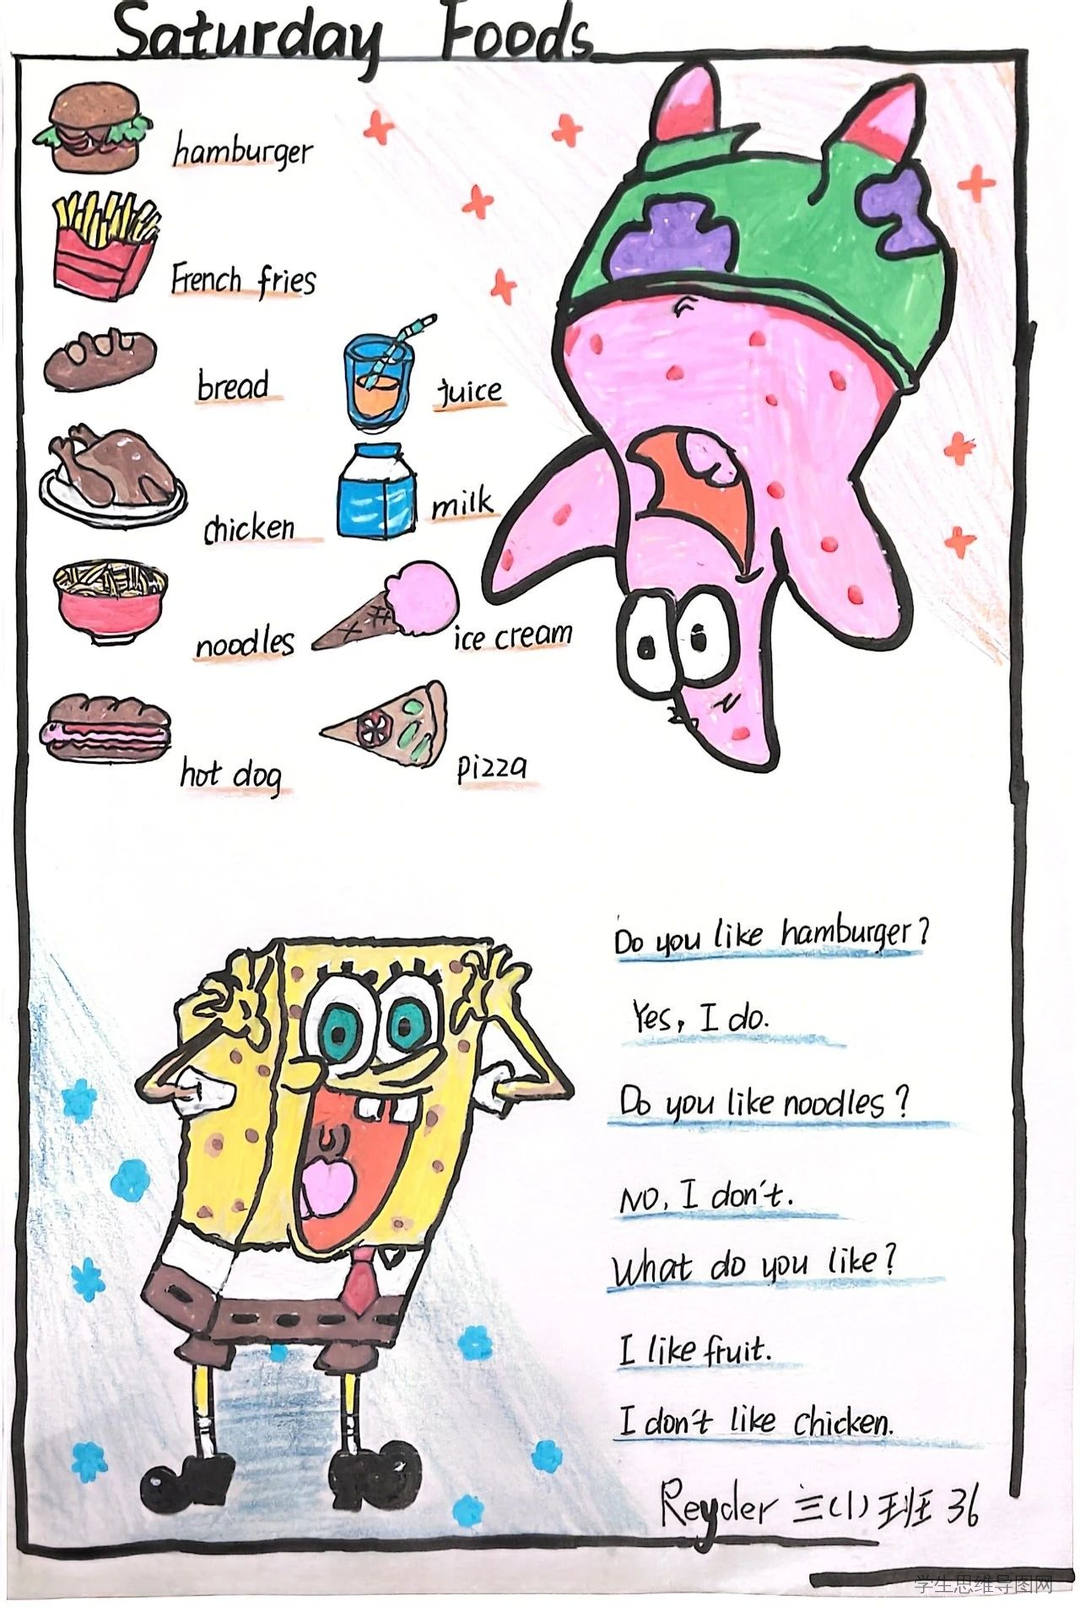 Saturday Foods
hamburger
French fries
bread
juice
chicken
milk
noodles
ice cream
hot dog
pizza
Do you like hamburger?
Yes, I do.
Do you like noodles?
No, I don't.
What do you like?
I like fruit.
I don't like chicken.
Reyder 三(1)班 36
学生思维导图网